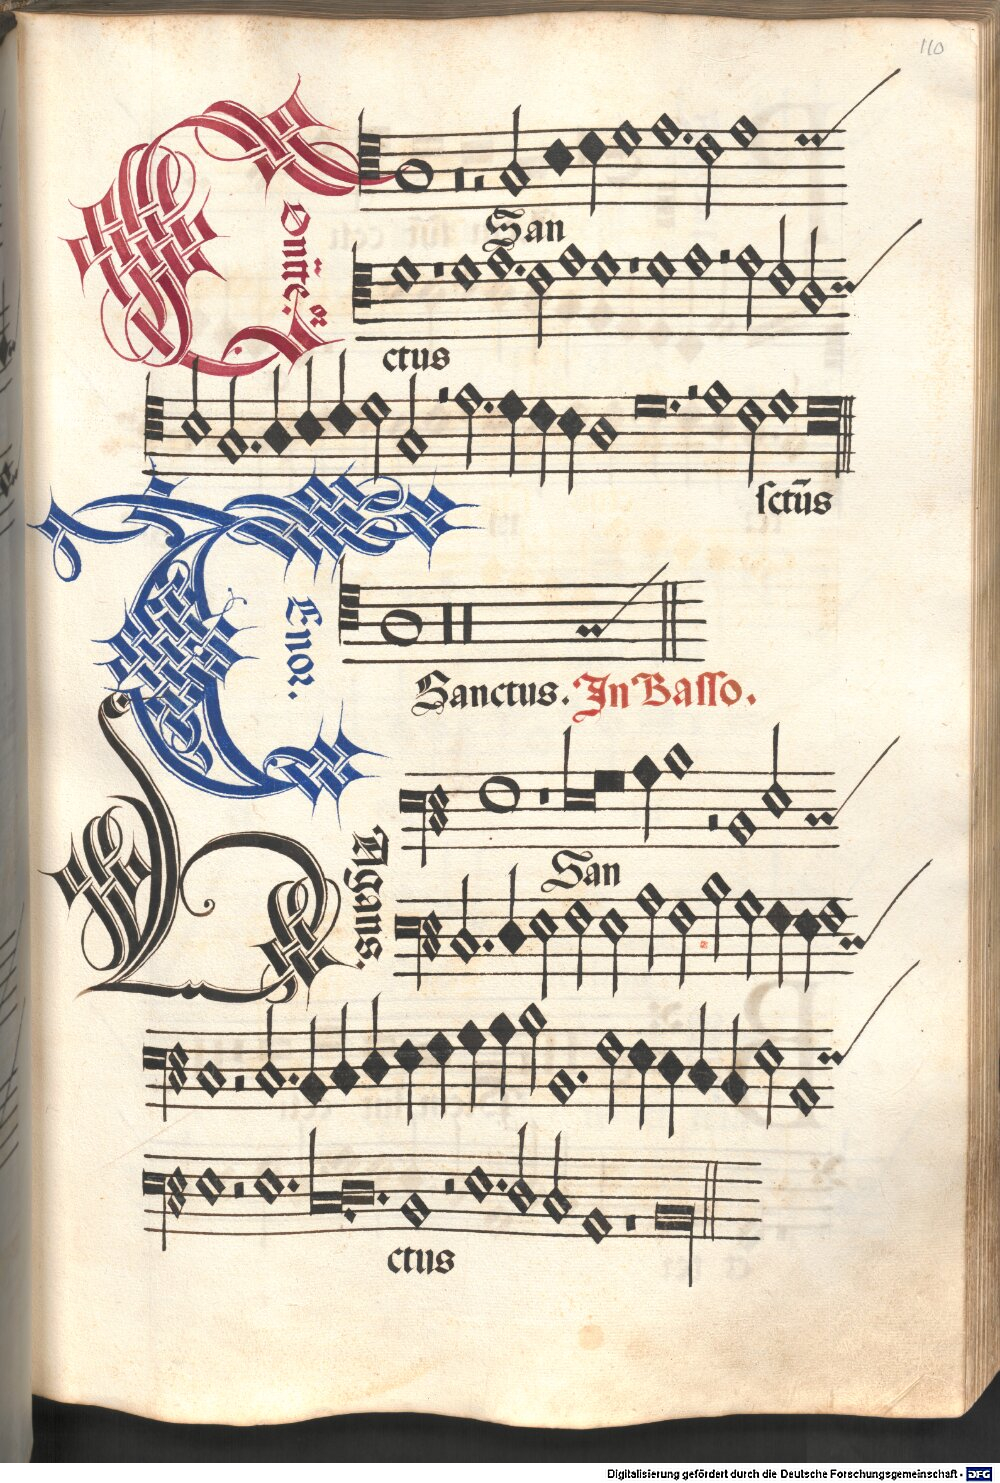 110
San
ctus
sctus
Tenor.
Sanctus. In Basso.
Vagans.
San
ctus
Digitalisierung gefördert durch die Deutsche Forschungsgemeinschaft - DFG